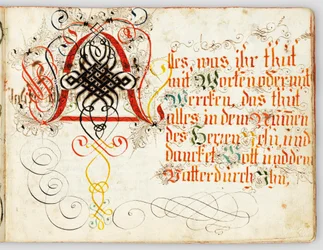 Alles, was ihr thut
mit Worten oder mit
Wercken, das thut
alles in dem Nammen
des Herren Jesu, und
dancket Gott und dem
Vatter durch Ihn,